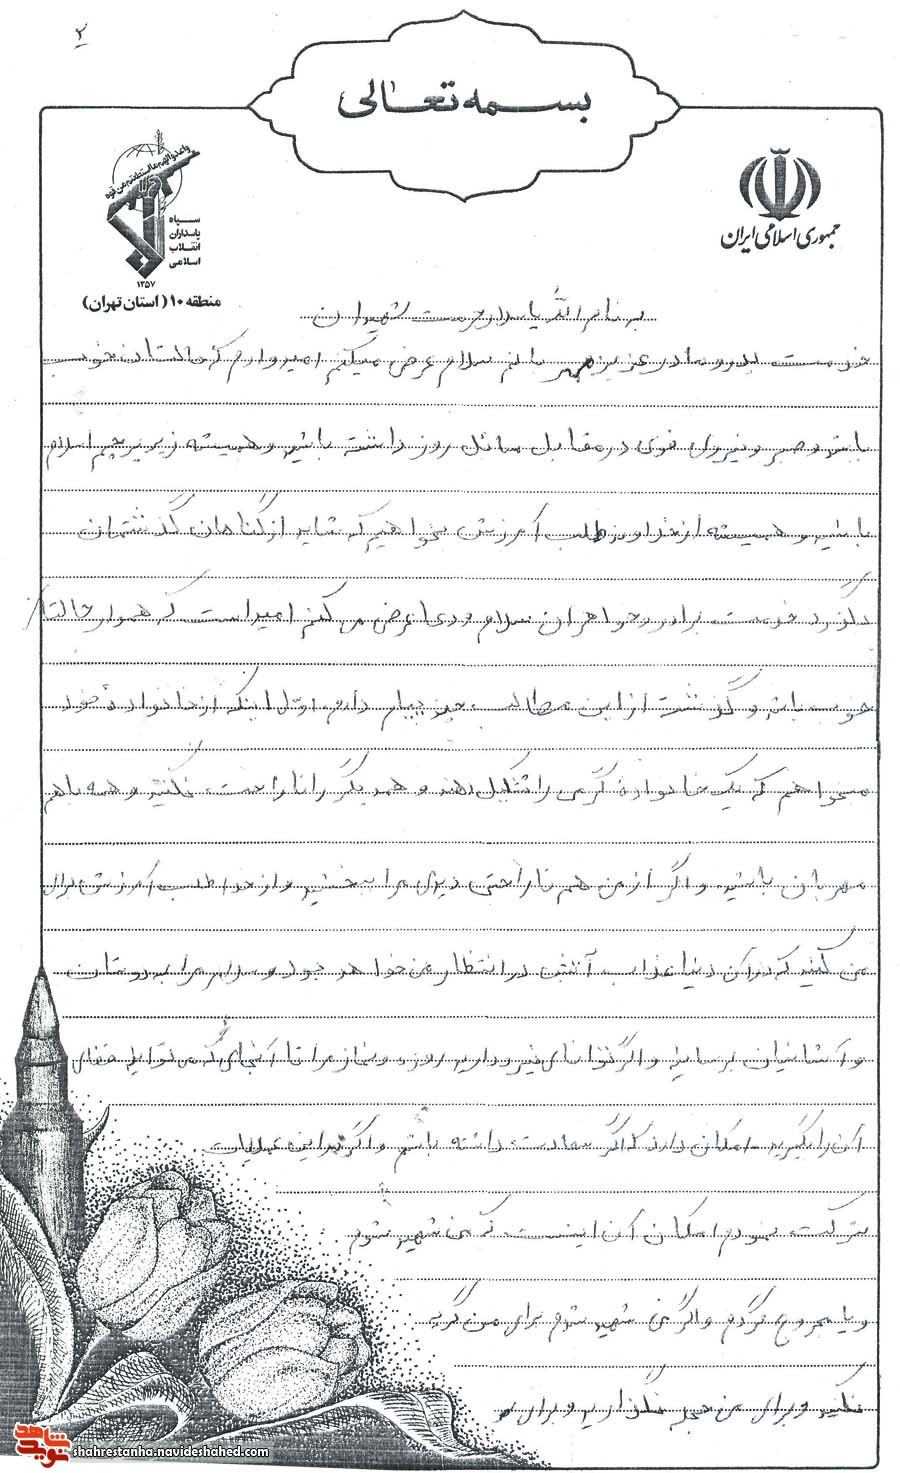 ۲
بسمه تعالی
جمهوری اسلامی ایران
واعدوا لهم ما استطعتم من قوة
سپاه
پاسداران
انقلاب
اسلامی
۱۳۵۷
منطقه ۱۰ (استان تهران)
به نام الله پاسدار حرمت شهیدان
خدمت پدر و مادر عزیز و مهربانم سلام عرض میکنم امیدوارم که حالتان خوب
باشد و صبر و نیروی قوی در مقابل مسائل روز داشته باشید و همیشه زیر پرچم اسلام
باشید و همیشه از خداوند طلب آمرزش بخواهیم که شاید از گناهان گذشتمان
درگذرد خدمت برادر و خواهران سلام و دعا عرض می کنم امید است که هموار حالتان
خوب باشد و گذشت از این مطالب چند پیام دارم اول اینکه از خانواده خود
میخواهم که یک خانواده گرمی را تشکیل دهند و همدیگر را ناراحت نکنید و همه باهم
مهربان باشید و اگر از من هم ناراحتی دیدی مرا ببخشید و از خدا طلب آمرزش برای
من کنید که در آن دنیا عذاب آتش در انتظار من خواهد بود و سلام مرا به دوستان
و آشنایان برسانید و اگر توانای نیرو دارید روزه و نماز مرا تا آنجای که می توانید قضای
آن را بگیرید امکان دارد که اگر سعادت داشته باشم و اگر در این عملیات
شرکت نمودم امکان آن اینست که من شهید شوم
و یا مجروح گردم و اگر من شهید شدم برای من گریه
نکنید و برای من حجله نگذارید و برای
نوید شاهد
shahrestanha.navideshahed.com